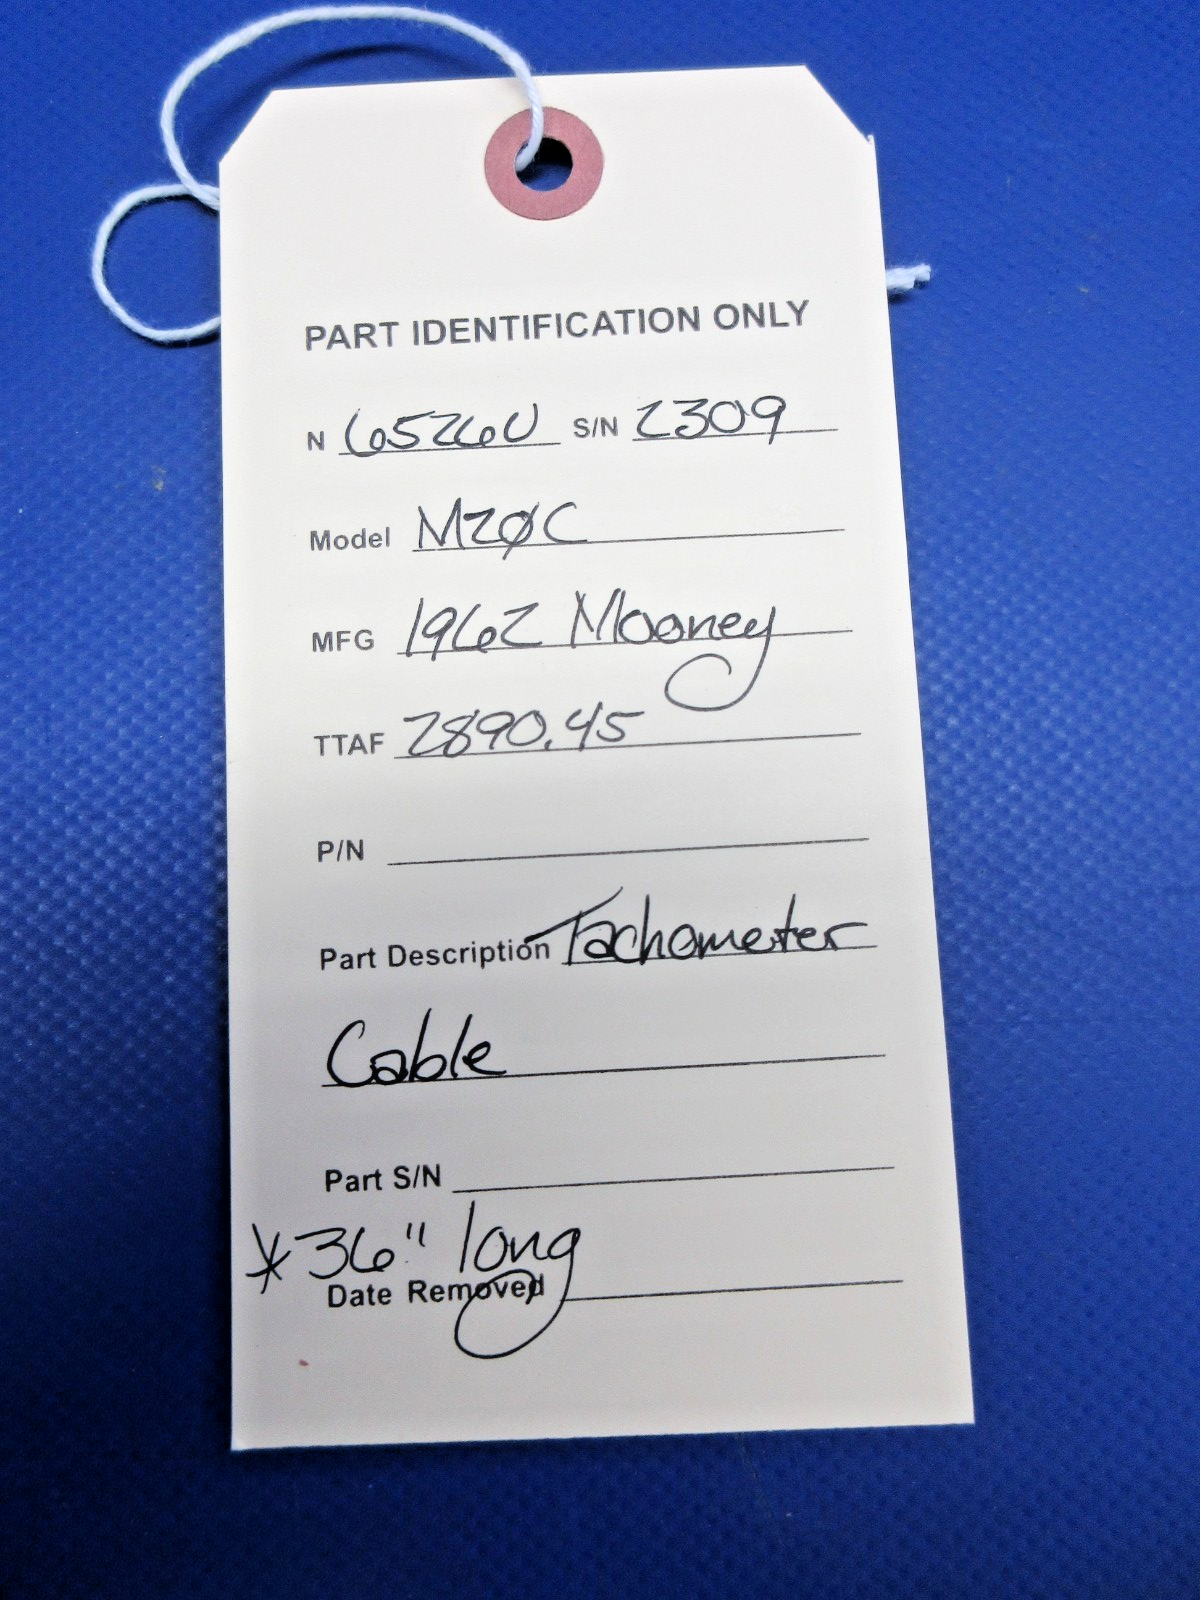 PART IDENTIFICATION ONLY
N 6526U S/N 2309
Model M20C
MFG 1962 Mooney
TTAF 2890.45
P/N
Part Description Tachometer
Cable
Part S/N
*36" long
Date Removed